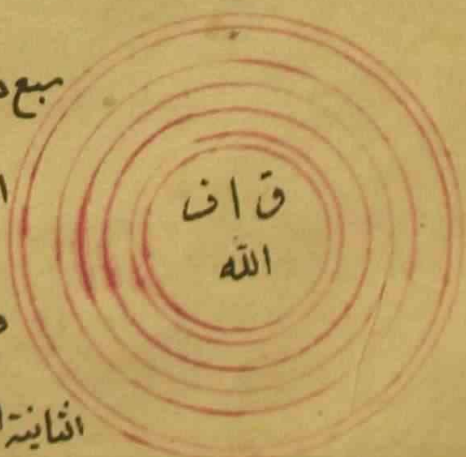 سبع
ق ا ف
الله
الثانية